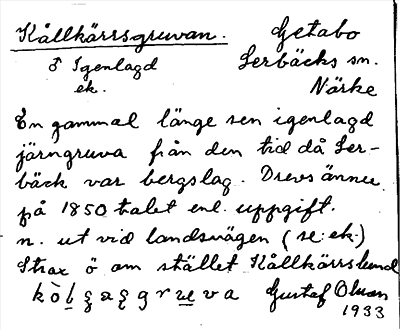 Kållkärrsgruvan. Getabo
♂ Igenlagd Lerbäcks sn.
ek. Närke
En gammal länge sen igenlagd
järngruva från den tid då Ler-
bäck var bergslag. Drevs ännu
på 1850 talet enl. uppgift.
n. ut vid landsvägen (se: ek.)
Strax ö om stället Kållkärrslund
Gustaf Olson
1933